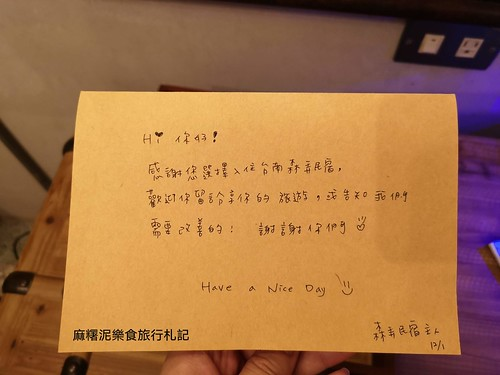 Hi 你好!
感謝您選擇入住台南森弄民宿。
歡迎你留話分享你的旅遊,或告知我們
需要改善的! 謝謝你們
Have a Nice Day
森弄民宿主人
12/1
麻糬泥樂食旅行札記